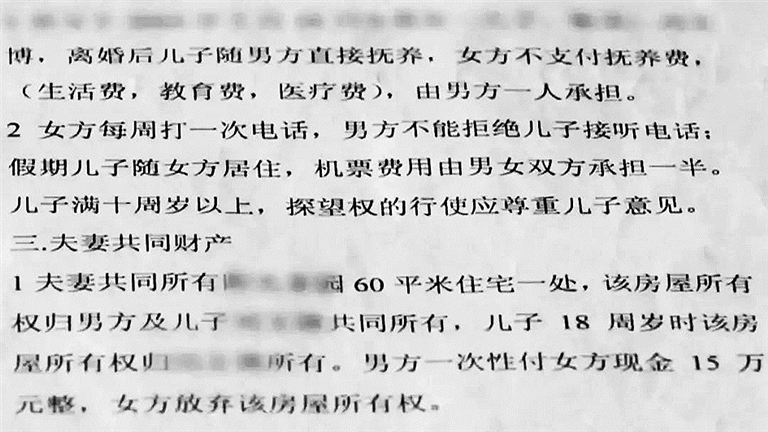 博，离婚后儿子随男方直接抚养，女方不支付抚养费，
（生活费，教育费，医疗费），由男方一人承担。
2 女方每周打一次电话，男方不能拒绝儿子接听电话；
假期儿子随女方居住，机票费用由男女双方承担一半。
儿子满十周岁以上，探望权的行使应尊重儿子意见。
三.夫妻共同财产
1 夫妻共同所有 60 平米住宅一处，该房屋所有
权归男方及儿子 共同所有，儿子 18 周岁时该房
屋所有权归 所有。男方一次性付女方现金 15 万
元整，女方放弃该房屋所有权。